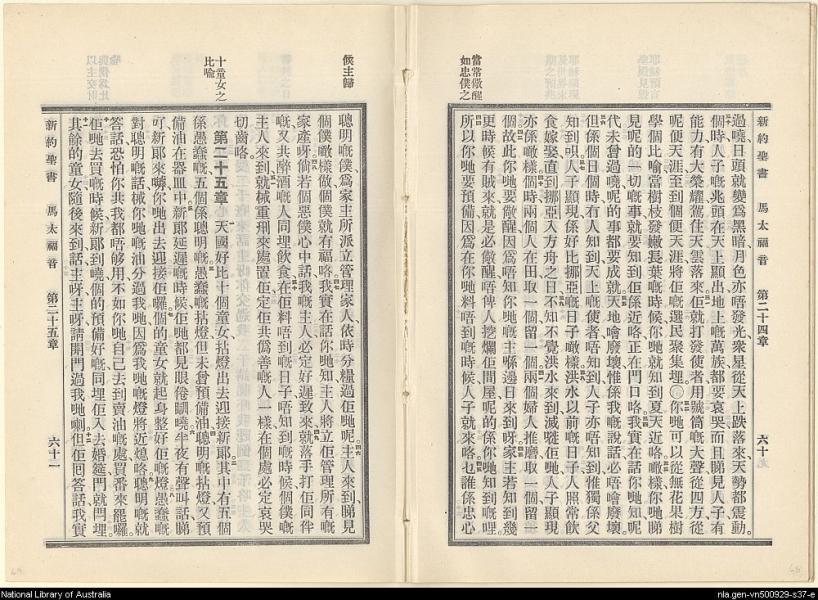 新約聖書 馬太福音 第二十四章 六十
過曉日頭就變爲黑暗月色亦唔發光衆星從天上跌落來天勢都震動。
個時人子嘅兆頭在天上顯出地上嘅萬族都要哀哭而且睇見人子有
能力有大榮耀駕住天雲落來佢就打發使者用號筒嘅大聲從四方從
呢便天涯至到個便天涯將佢嘅選民聚集埋○你哋可以從無花果樹
學個比喻當樹枝發嫩長葉嘅時候你哋就知到夏天近咯噉樣你哋睇
見呢的一切嘅事就要知到佢係近咯正在門口咯我實在話你哋知呢
代未曾過曉呢的事都要成就天地會廢壞惟係我嘅說話必唔會廢壞
但係個日個時冇人知到天上嘅使者唔知到人子亦唔知到惟獨係父
知到唄人子顯現係好比挪亞嘅日子噉樣洪水以前嘅日子人照常飲
食嫁娶直到挪亞入方舟之日不知不覺洪水來到滅曉佢哋人子顯現
亦係噉樣個時兩個人在田取一個留一個兩個婦人推磨取一個留一
個故此你哋要儆醒因爲唔知你哋嘅主係邊日來到呀家主若知到幾
更時候有賊來就是必儆醒唔俾人挖爛佢間屋呢的係你哋知到嘅哩
所以你哋要預備因爲在你哋料唔到嘅時候人子就來咯乜誰係忠心
當常儆醒
如忠僕之
候主歸
聰明嘅僕爲家主所派立管理家人依時分糧過佢哋呢主人來到睇見
個僕噉樣做個僕就有福咯我實在話你哋知主人將立佢管理所有嘅
家產呀倘若個惡僕心中話我嘅主人必定好遲致來就落手打佢同伴
嘅又共醉酒嘅人同埋飮食在佢料唔到嘅日子唔知到嘅時候個僕嘅
主人來到就械重刑來處置佢定佢共僞善嘅人一樣在個處必定哀哭
切齒咯
十童女之
比喻
第二十五章 天國好比十個童女拈燈出去迎接新郞其中有五個
係愚蠢嘅五個係聰明嘅愚蠢嘅拈燈但未曾預備油聰明嘅拈燈又預
備油在器皿中新郞延遲嘅時候佢哋都見眼倦瞓曉半夜有聲叫話睇
吓新郞來嚹你哋出去迎接佢囉個的童女就起身整好佢嘅燈愚蠢嘅
對聰明嘅話械你哋嘅油分過我哋因爲我哋嘅燈將近熄咯聰明嘅就
答話恐怕你共我都唔够用不如你哋自己去到賣油嘅處買番來罷囉。
佢哋去買嘅時候新郞到曉個的預備好嘅同埋佢入去婚筵門就閂埋
其餘的童女隨後來到話主呀主呀請開門過我哋喇但佢囘答話我實
新約聖書 馬太福音 第二十五章 六十一
National Library of Australia
nla.gen-vn500929-s37-e